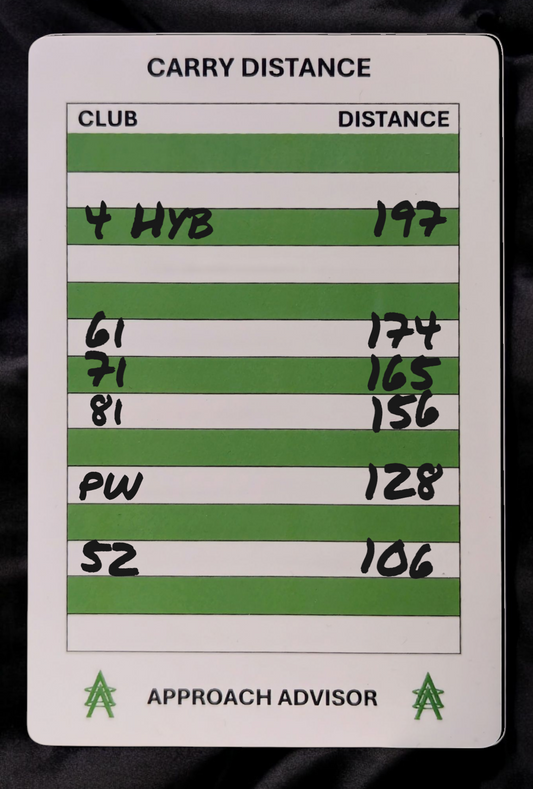 CARRY DISTANCE
CLUB DISTANCE
4 HYB 197
61 174
71 165
81 156
PW 128
52 106
APPROACH ADVISOR